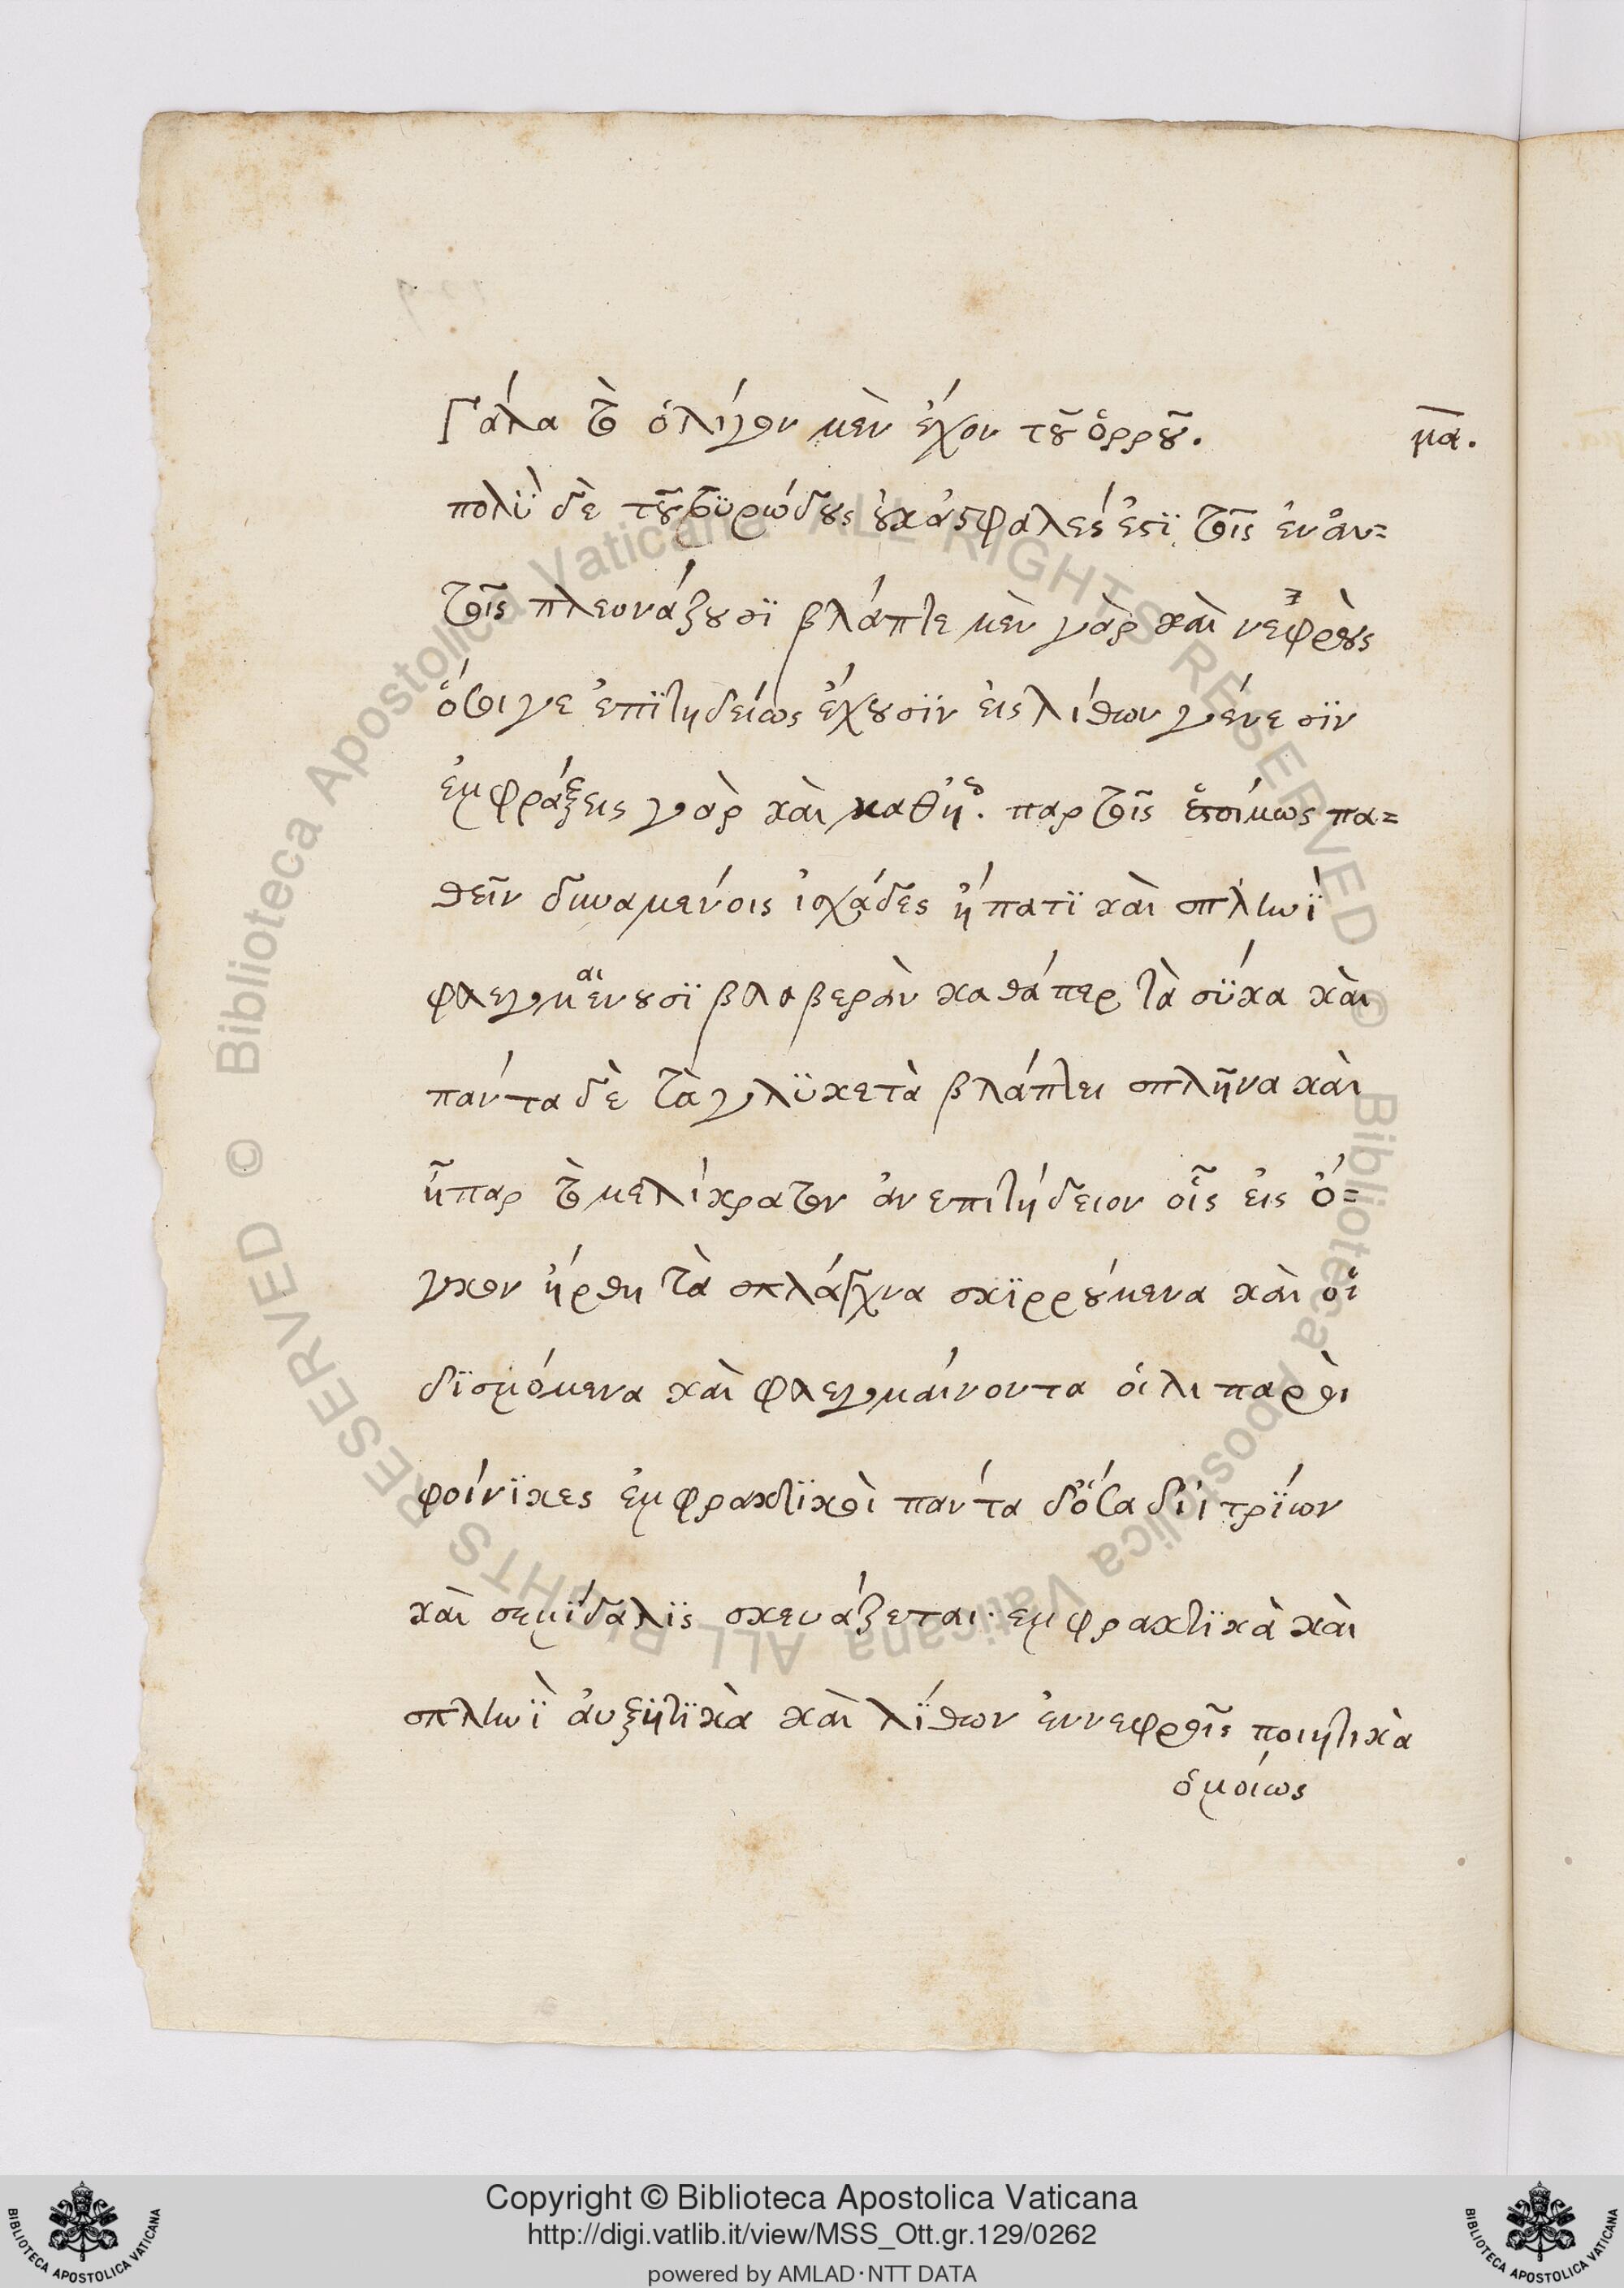 Γάλα τὸ ὀλίγον μὲν ἔχον τοῦ ὀρροῦ.
μα.
πολὺ δὲ τοῦ τυρώδους οὐκ ἀσφαλές ἐστϊ τοῖς ἐν ἀυ=
τοῖς πλεονάζουσϊ βλάπτε μὲν γὰρ καὶ νεφροὺς
ὅσοι γε ἐπϊτηδείως ἔχουσϊν εἰς λίθων γένεσϊν
ἐμφράξεις γὰρ καὶ καθ' ἧ. παρ τοῖς ἑτοίμως πα=
θεῖν δυναμενόις ἰσχάδες ἥπατϊ καὶ σπληνϊ
φλεγμαίνουσϊ βλαβερὸν καθάπερ τὰ σῦκα καὶ
πάντα δὲ τὰ γλϋκετὰ βλάπτει σπλῆνα καὶ
ἧπαρ τὸ μελίκρατον ἀνεπιτήδειον οἷς εἰς ὄ=
γκον ἤρθη τὰ σπλάγχνα σκϊρρούμενα καὶ οἱ
δϊσμόμενα καὶ φλεγμαίνοντα οἱ λιπαροὶ
φοίνϊκες ἐμφρακτϊκοὶ πάντα δ' ὅσα δι' ἰτρΐων
καὶ σεμϊδαλϊς σκευάζεται· εμφρακτϊκὰ καὶ
σπληνϊ ἀυξητϊκὰ καὶ λΐθων ἐν νεφροῖς ποιητικὰ
ὁμοίως
Copyright © Biblioteca Apostolica Vaticana
http://digi.vatlib.it/view/MSS_Ott.gr.129/0262
powered by AMLAD·NTT DATA
BIBLIOTECA APOSTOLICA VATICANA
BIBLIOTECA APOSTOLICA VATICANA
© Biblioteca Apostolica Vaticana ALL RIGHTS RESERVED © Biblioteca Apostolica Vaticana ALL RIGHTS RESERVED